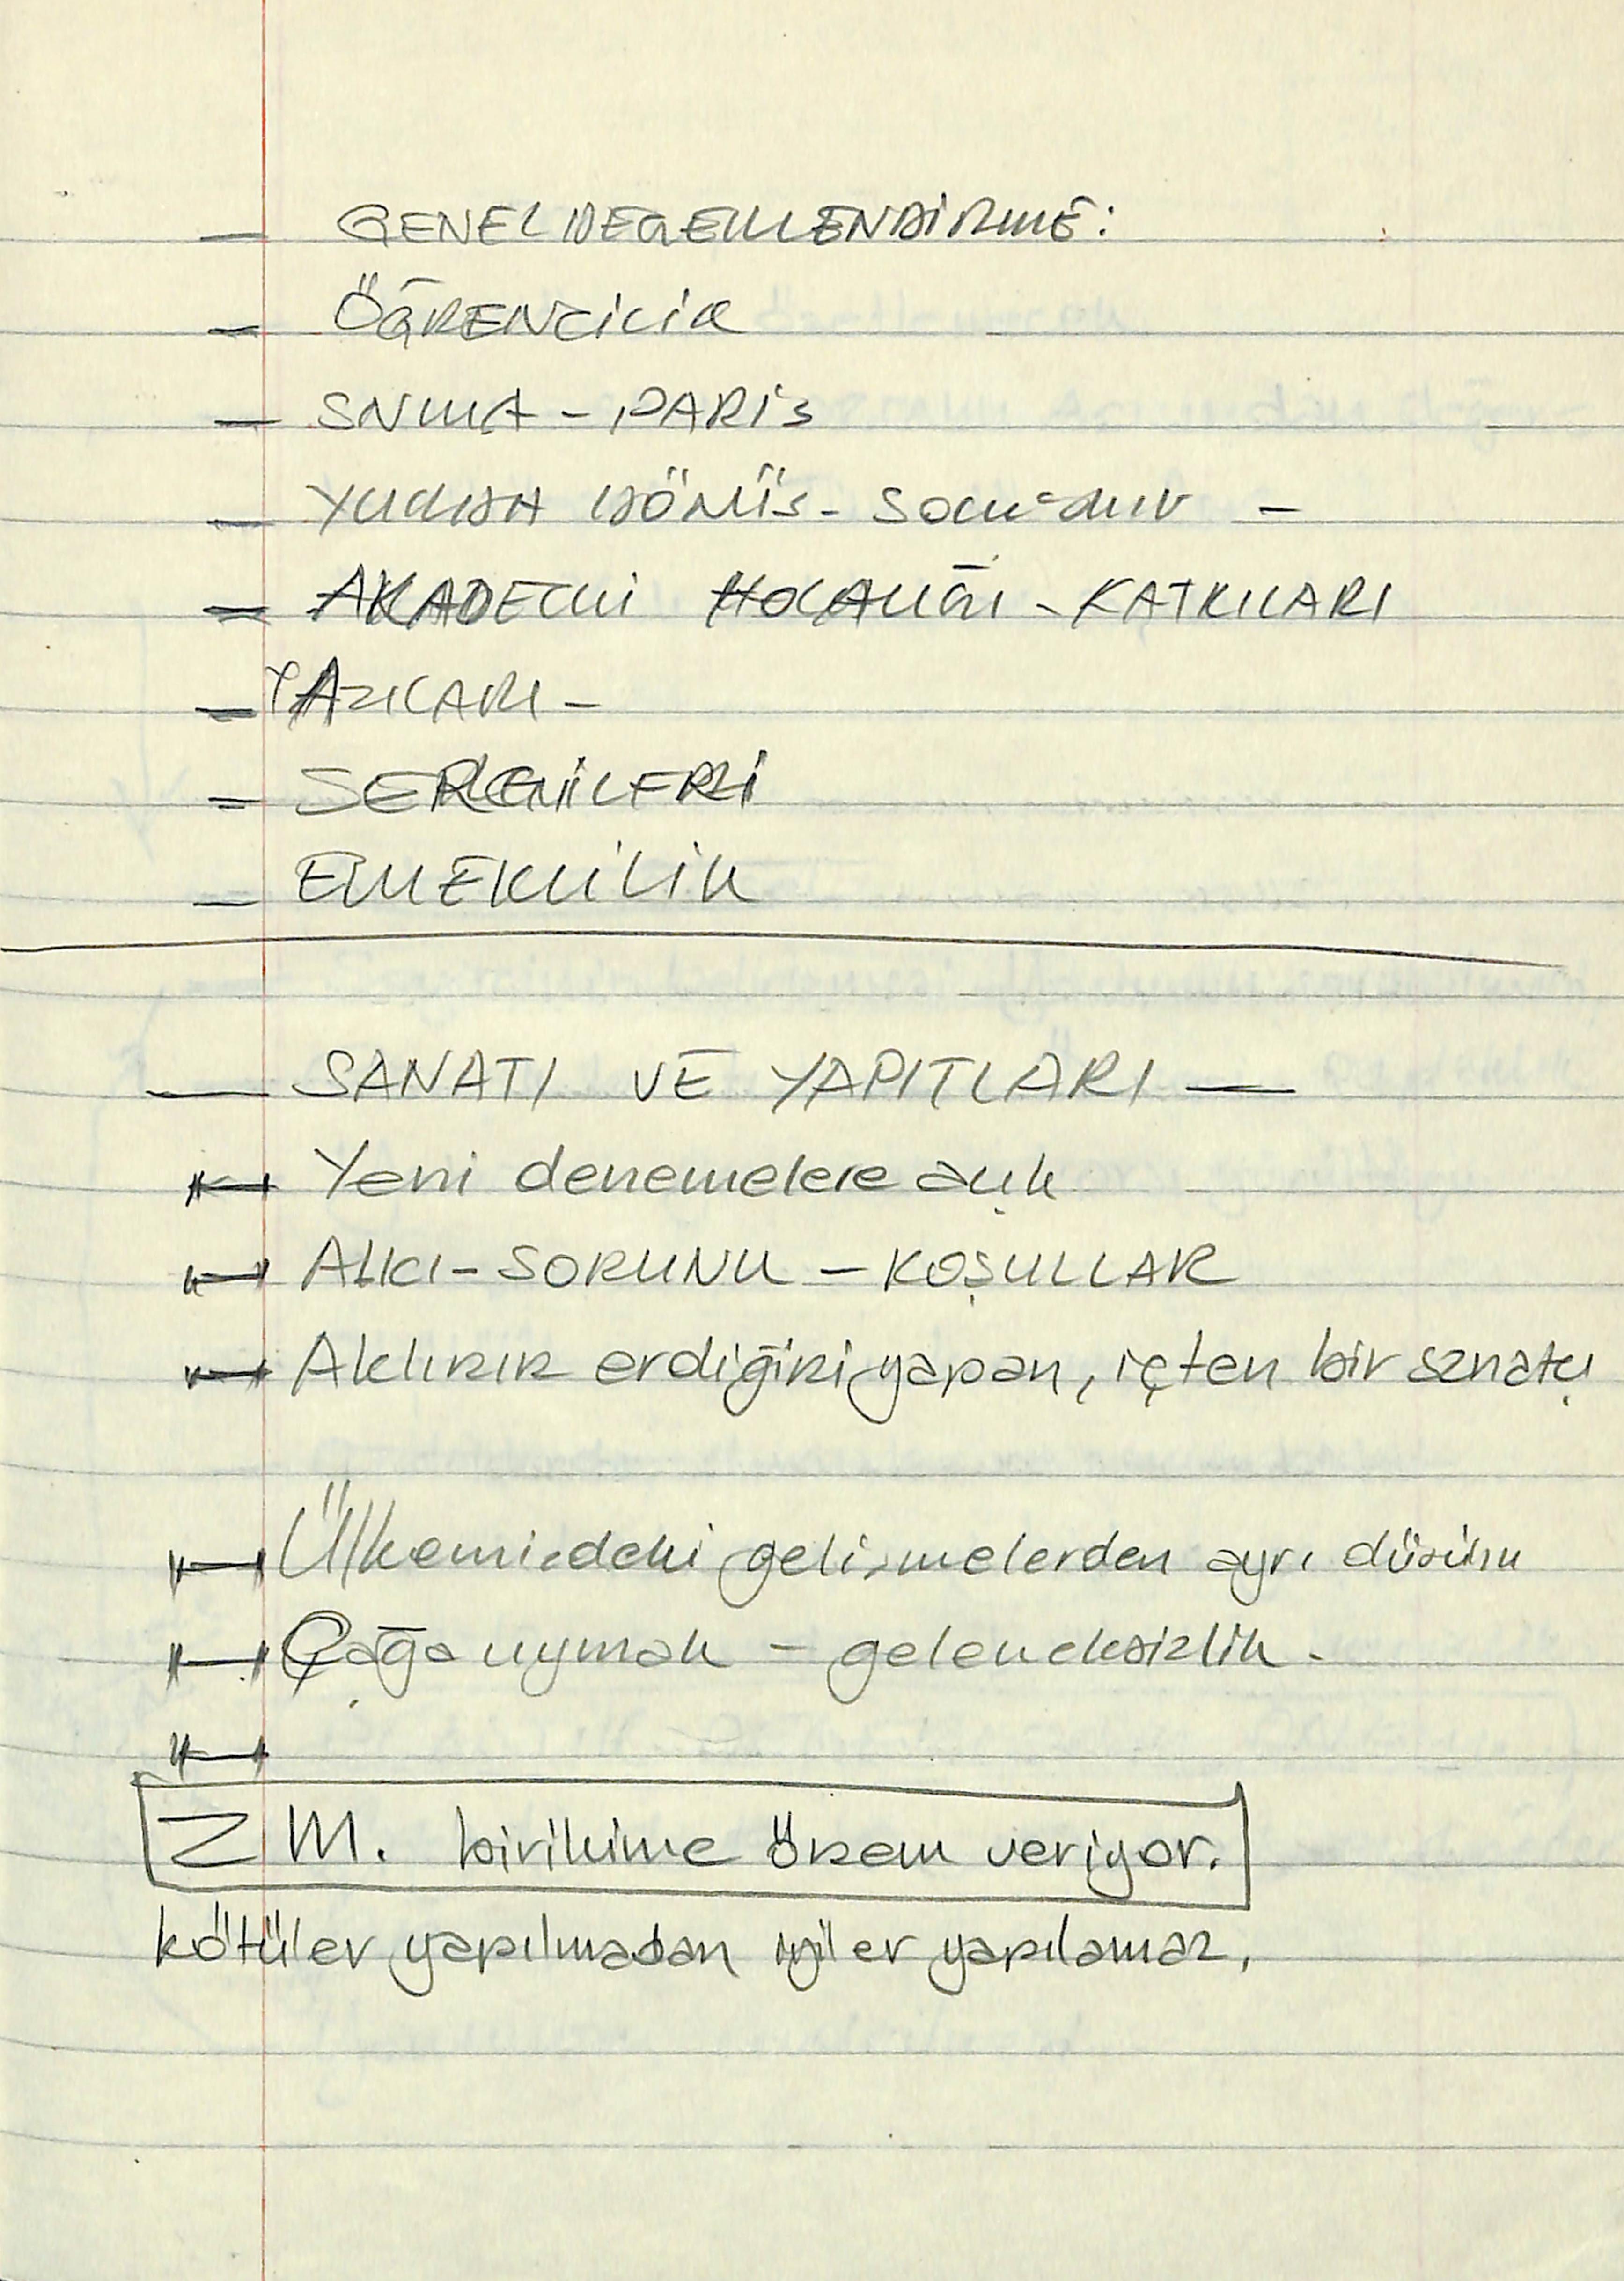 — GENEL DEĞERLENDİRME:
— ÖĞRENCİLİK
— SNMA - PARİS
— YURDA DÖNÜŞ -
— AKADEMİ HOCALIĞI - KATKILARI
— YAZILARI -
— SERGİLERİ
— EMEKLİLİK
— SANATI VE YAPITLARI —
Yeni denemelere açık
ALICI - SORUNU - KOŞULLAR
Aklının erdiğini yapan, içten bir sanatçı
Ülkemizdeki gelişmelerden ayrı
Çağa uymak - geleneksizlik.
Z M. birikime önem veriyor.
kötüler yapılmadan iyiler yapılamaz.